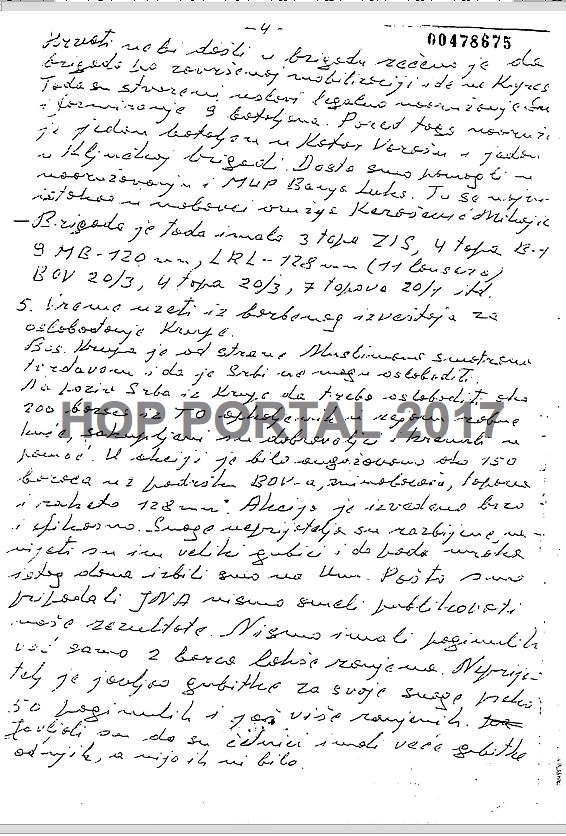 - 4 -
00478675
Hrvati ne bi došli u brigadu rečeno je da
brigada po završenoj mobilizaciji ide na Kupres
Tada su stvoreni uslovi legalno
i formiranje 9 bataljona. Pored toga
je jedan bataljon u Kotor Varošu i jedan
u Ključkoj brigadi. Dosta smo pomogli u
naoružavanju i MUP Banja Luka. Tu se
istakao u nabavci oružja Mihajlo
– Brigada je tada imala 3 topa ZIS, 4 topa B-1
9 MB-120 mm, LRL-128 mm (11 lansera)
BOV 20/3, 4 topa 20/3, 7 topova 20/1 itd.
5. Vreme uzeti iz borbenog izveštaja za
oslobođenje Krupe.
Bos. Krupa je od strane Muslimana smatrana
tvrđavom i da je Srbi ne mogu osloboditi.
Na poziv Srba iz Krupe da treba osloboditi oko
200 boraca iz TO u rejonu robne
kuće, sakupljeni su dobrovoljci i krenuli u
pomoć. U akciji je bilo angažovano oko 150
boraca uz podršku BOV-a, minobacača, topova
i raketa 128 mm. Akcija je izvedena brzo
i efikasno. Snage neprijatelja su razbijene, na-
nijeti su im veliki gubici i do pada mraka
istog dana izbili smo na Unu. Pošto smo
pripadali JNA nismo smeli publikovati
naše rezultate. Nismo imali poginulih
već samo 2 borca lakše ranjena. Neprija-
telj je javljao gubitke za svoje snage preko
50 poginulih i još više ranjenih.
Javljali su da su četnici imali veće gubitke
od njih, a nije ih ni bilo.
HOP PORTAL 2017